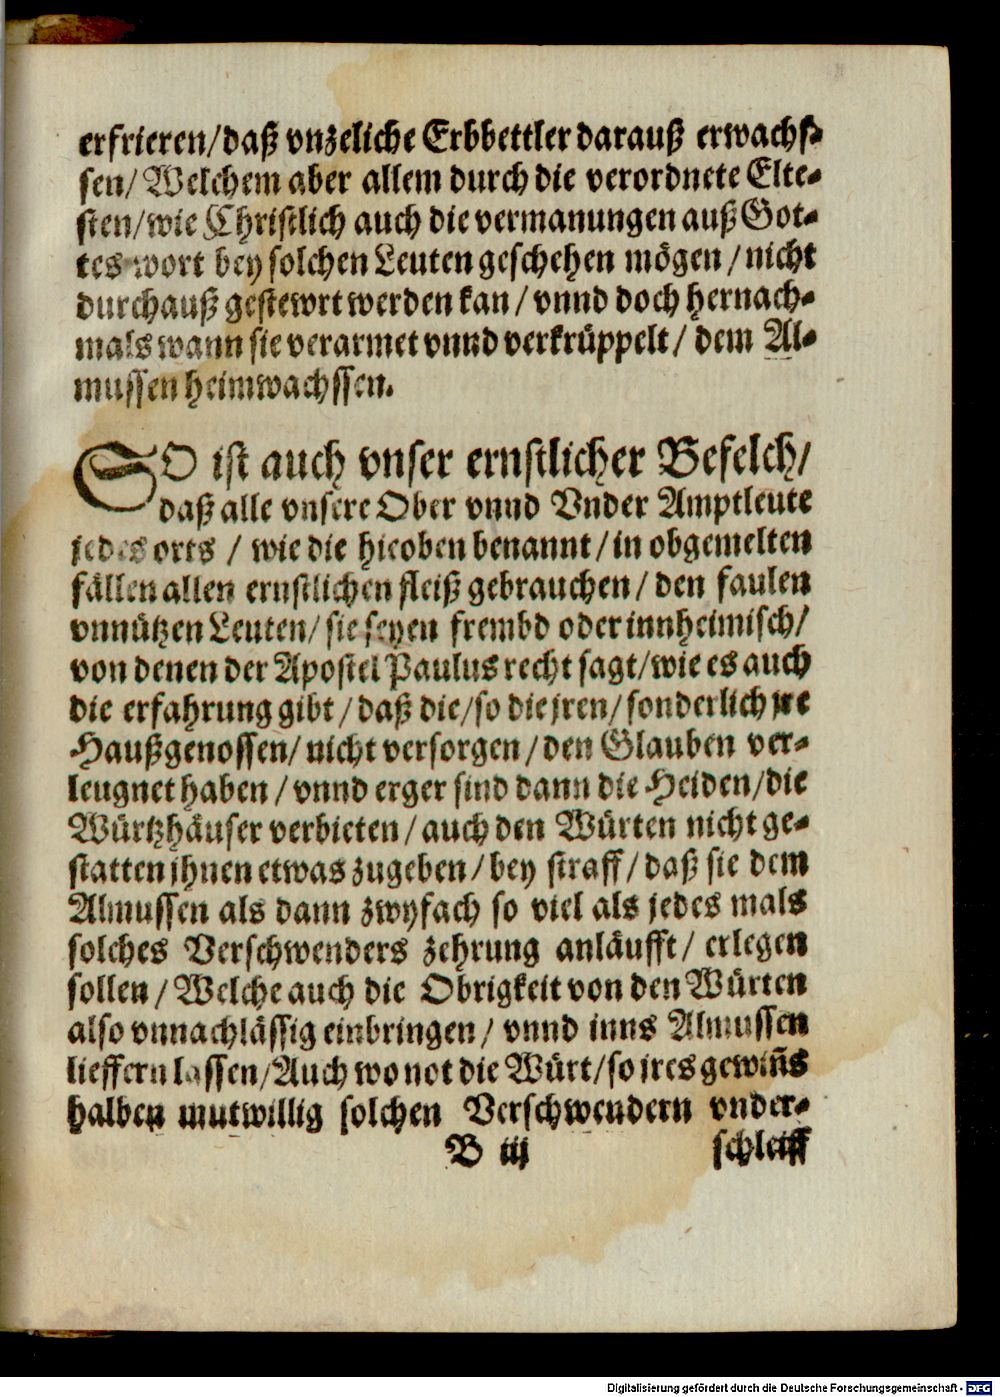 erfrieren/daß vnzeliche Erbbettler darauß erwachs-
sen/Welchem aber allem durch die verordnete Elte-
sten/wie Christlich auch die vermanungen auß Got-
tes wort bey solchen Leuten geschehen mögen/nicht
durchauß gestewrt werden kan/vnnd doch hernach-
mals wann sie verarmet vnnd verkrüppelt/dem Al-
mussen heimwachssen.
SO ist auch vnser ernstlicher Befelch/
daß alle vnsere Ober vnnd Vnder Amptleute
jedes orts/wie die hieoben benannt/in obgemelten
fällen allen ernstlichen fleiß gebrauchen/den faulen
vnnützen Leuten/sie seyen frembd oder innheimisch/
von denen der Apostel Paulus recht sagt/wie es auch
die erfahrung gibt/daß die/so die jren/sonderlich jre
Haußgenossen/nicht versorgen/den Glauben ver-
leugnet haben/vnnd erger sind dann die Heiden/die
Würtzhäuser verbieten/auch den Würten nicht ge-
statten jhnen etwas zugeben/bey straff/daß sie dem
Almussen als dann zwyfach so viel als jedes mals
solches Verschwenders zehrung anläufft/erlegen
sollen/Welche auch die Obrigkeit von den Würten
also vnnachlässig einbringen/vnnd inns Almussen
lieffern lassen/Auch wo not die Würt/so jres gewiñs
halben mutwillig solchen Verschwendern vnder-
B iij schleiff
Digitalisierung gefördert durch die Deutsche Forschungsgemeinschaft - DFG